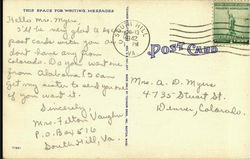 THIS SPACE FOR WRITING MESSAGES
Hello Mrs. Myers,
I'll be very glad to
post cards with you as I
don't have any from
Colorado. Do you want one
from Alabama? I can
get my sister to send you one
if you want it.
Sincerely,
Mrs. Felton Vaughn
P.O. Box 516
South Hill, Va.
SOUTH HILL
1942
PM
VA.
POST CARD
Mrs. A. D. Myers
4735 Stuart St.
Denver, Colorado.